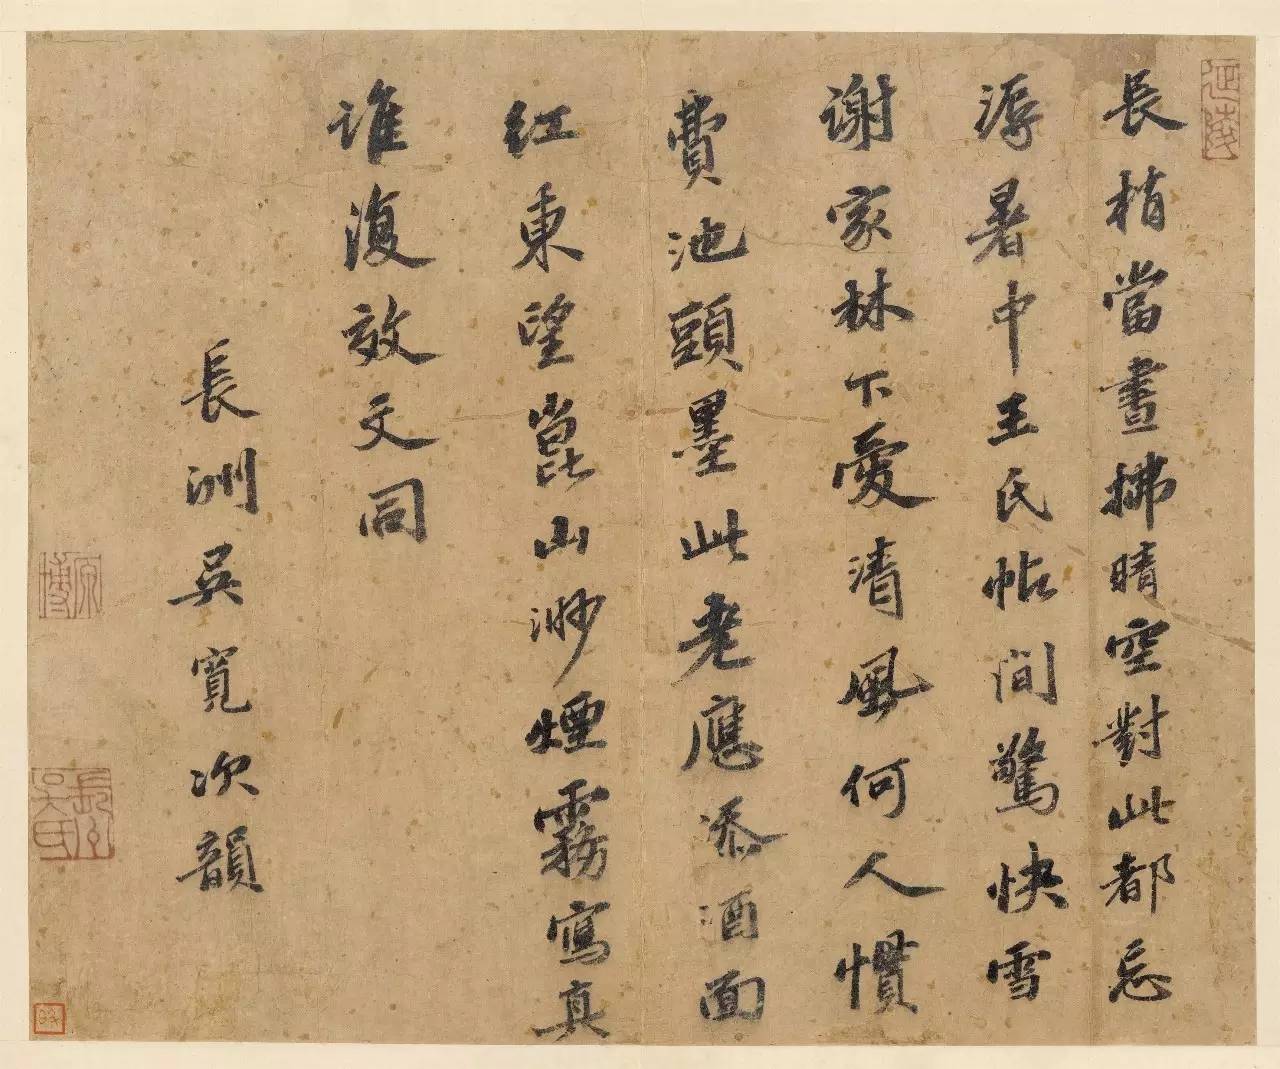 長梢當晝拂晴空對此都忘
溽暑中王氏帖間驚快雪
謝家林下愛清風何人慣
費池頭墨此老應添酒面
紅東望崑山渺煙霧寫真
誰復效文同
長洲吳寬次韻
延陵
原博